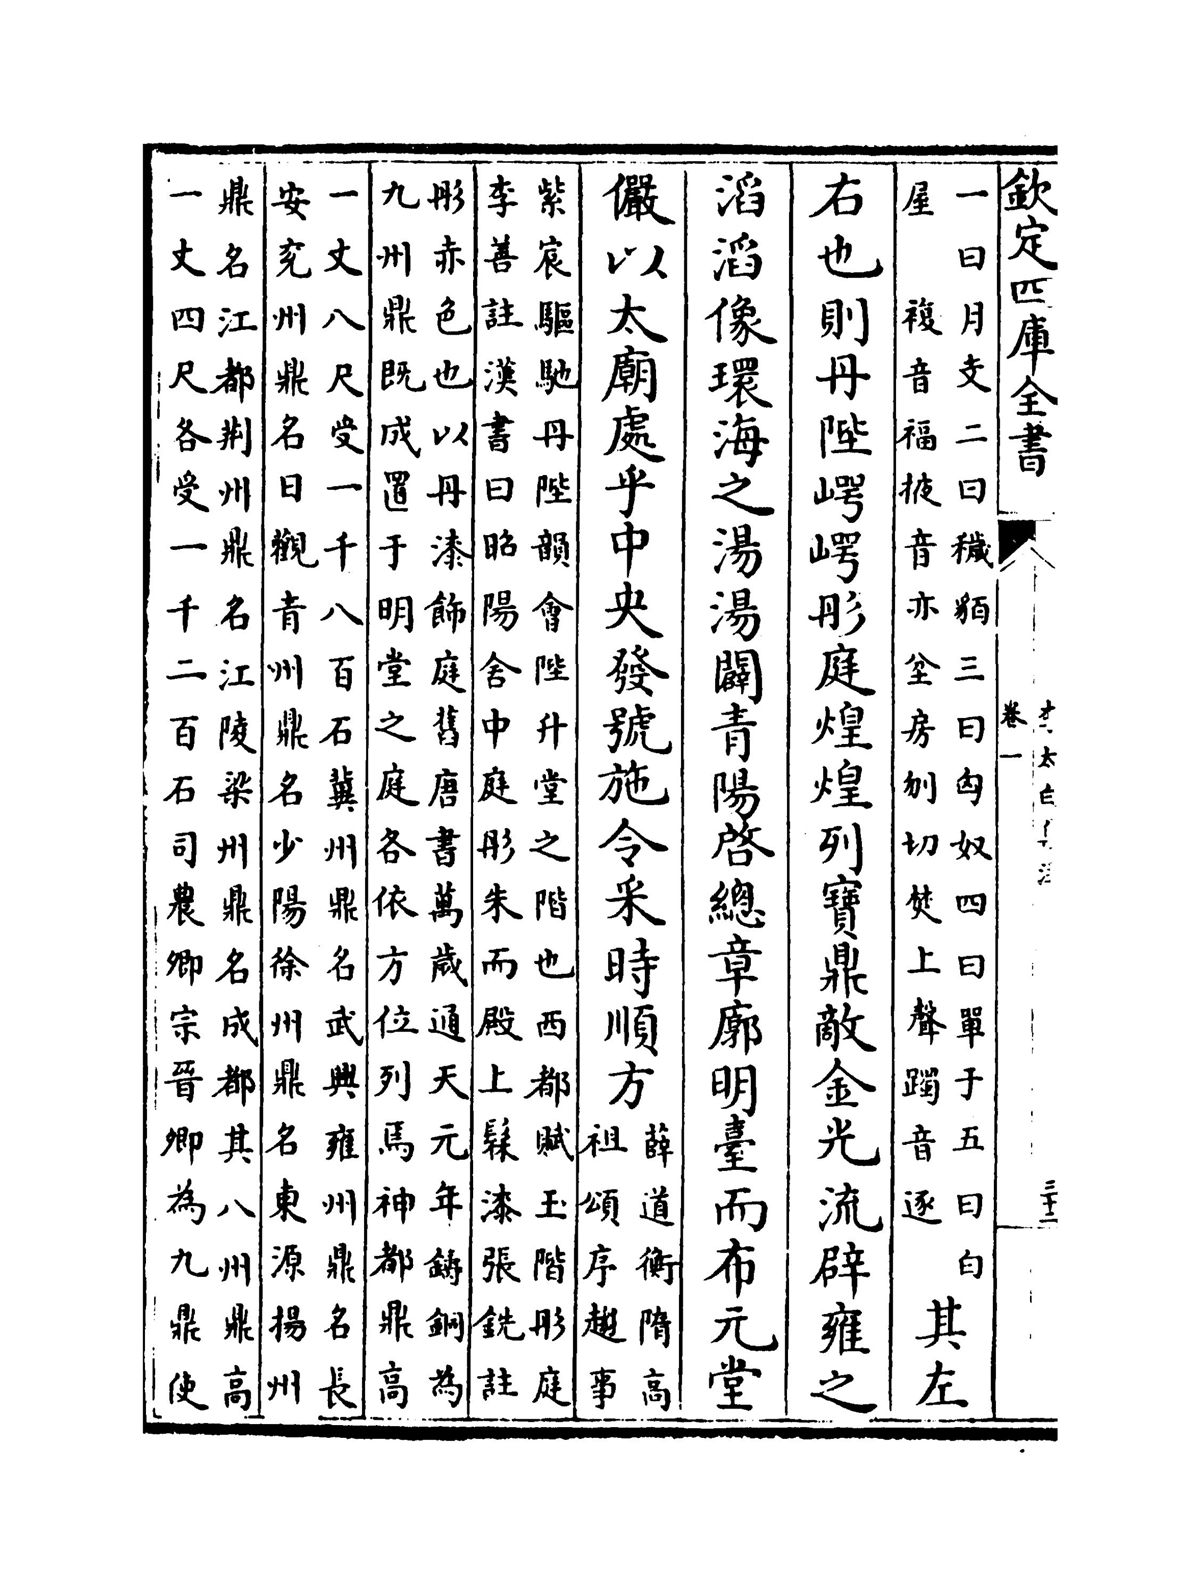 欽定四庫全書
李太白集注
卷一
三十二
一曰月支二曰穢貊三曰匈奴四曰單于五曰白
屋　複音福掖音亦坌房刎切焚上聲躅音逐
其左
右也則丹陛崿崿彤庭煌煌列寶鼎敵金光流辟雍之
滔滔像環海之湯湯闢青陽啓總章廓明臺而布元堂
儼以太廟處乎中央發號施令采時順方
薛道衡隋高
祖頌序趨事
紫宸驅馳丹陛韻會陛升堂之階也西都賦玉階彤庭
李善註漢書曰昭陽舍中庭彤朱而殿上髹漆張銑註
彤赤色也以丹漆飾庭舊唐書萬歲通天元年鑄銅為
九州鼎既成置于明堂之庭各依方位列焉神都鼎高
一丈八尺受一千八百石冀州鼎名武興雍州鼎名長
安兖州鼎名日觀青州鼎名少陽徐州鼎名東源揚州
鼎名江都荆州鼎名江陵梁州鼎名成都其八州鼎高
一丈四尺各受一千二百石司農卿宗晉卿為九鼎使